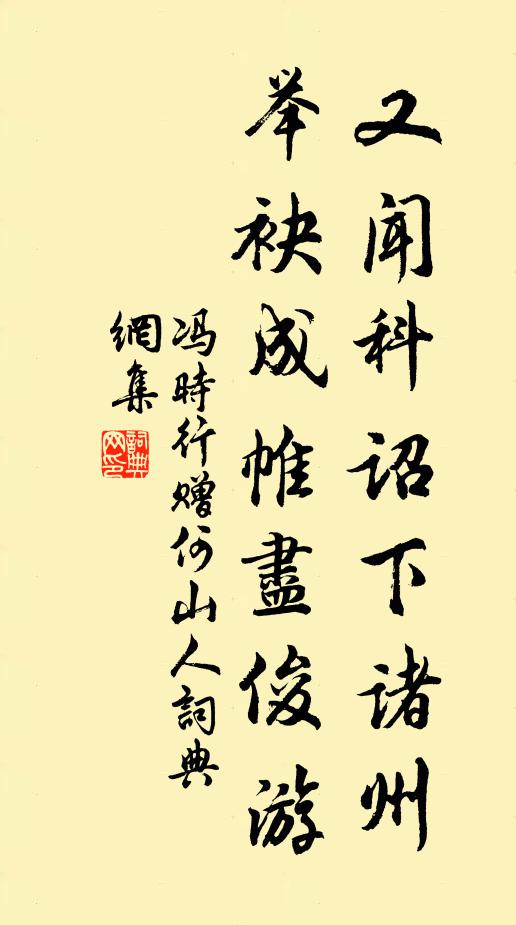 又闻科诏下诸州
举袂成帷盡俊游
冯時行赠何山人詞典
網集
詞典網印